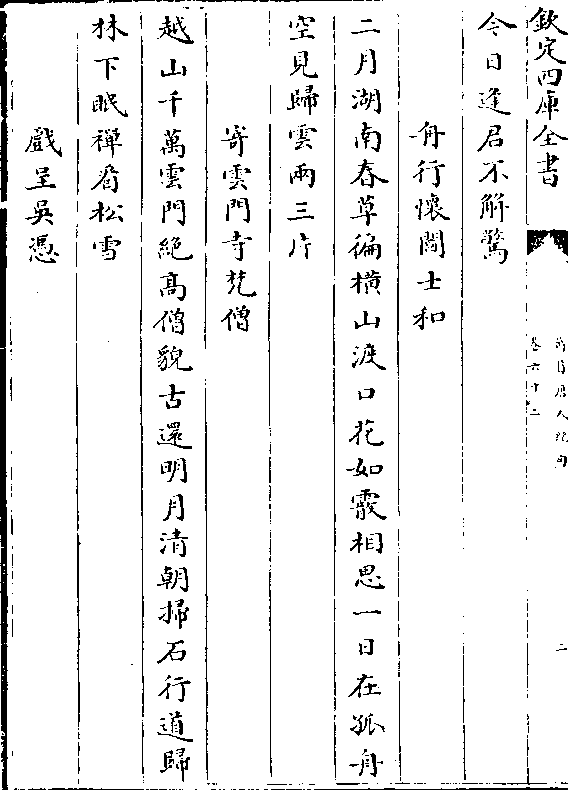 欽定四庫全書
萬首唐人絶句
卷六十二
二
今日逢君不解驚
舟行懷閻士和
二月湖南春草徧横山渡口花如霰相思一日在孤舟
空見歸雲兩三片
寄雲門寺梵僧
越山千萬雲門絶髙僧貌古還明月清朝掃石行道歸
林下眠禪㸔松雪
戲呈吳憑